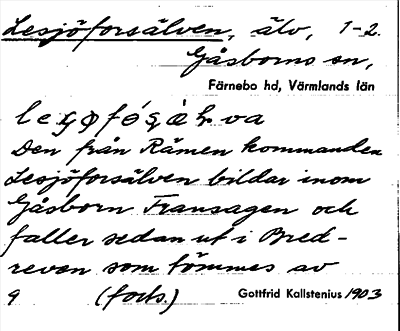 Lesjöforsälven, älv, 1-2.
Gåsborns sn,
Färnebo hd, Värmlands län
Den från Rämen kommanden
Lesjöforsälven bildar inom
Gåsborn Fransagen och
faller sedan ut i Bred-
reven som tömmes av
9 (forts.) Gottfrid Kallstenius 1903